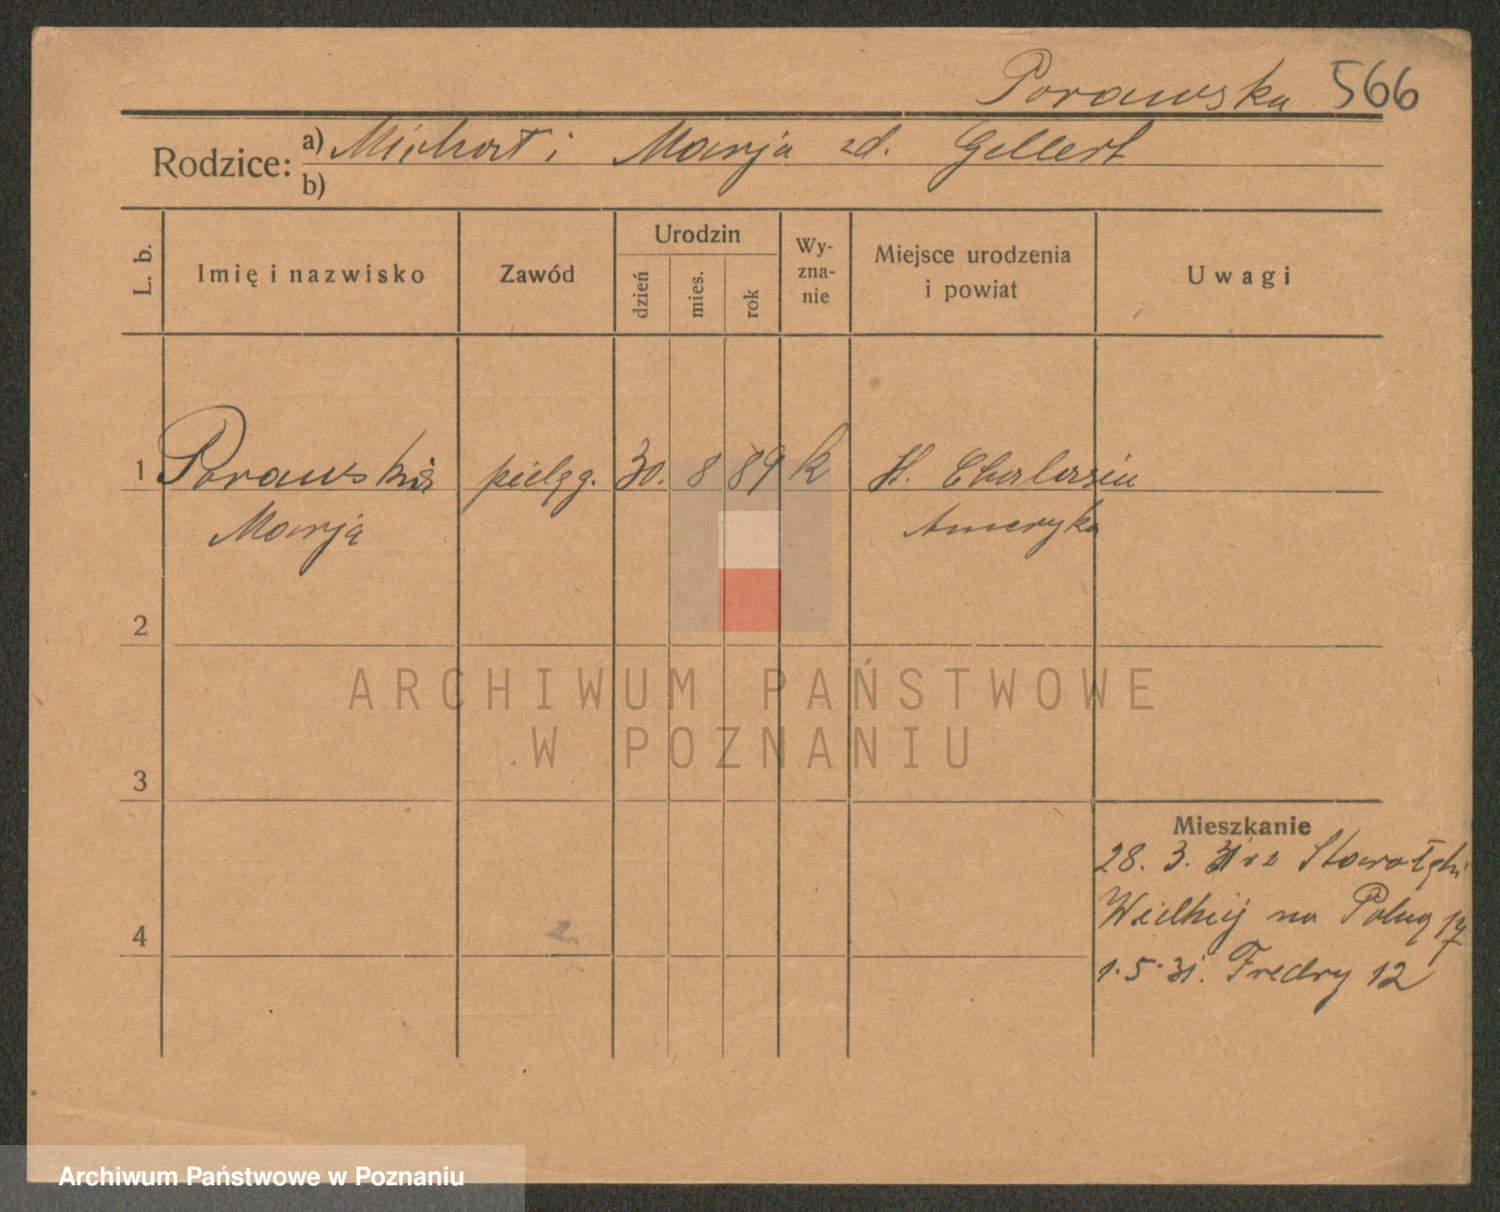 Porawska 566
Rodzice: a) Michał i Marja zd. Gellert
b)
L. b. Imię i nazwisko Zawód Urodzin dzień mies. rok Wy-zna-nie Miejsce urodzenia i powiat Uwagi
1 Porawska pielęg. 30. 8 89 k
Marja Ameryka
2
ARCHIWUM PAŃSTWOWE
W POZNANIU
3
Mieszkanie
28. 3. 31 z Starołęki
Wielkiej na Polną 17
4
1.5.31. Fredry 12
Archiwum Państwowe w Poznaniu